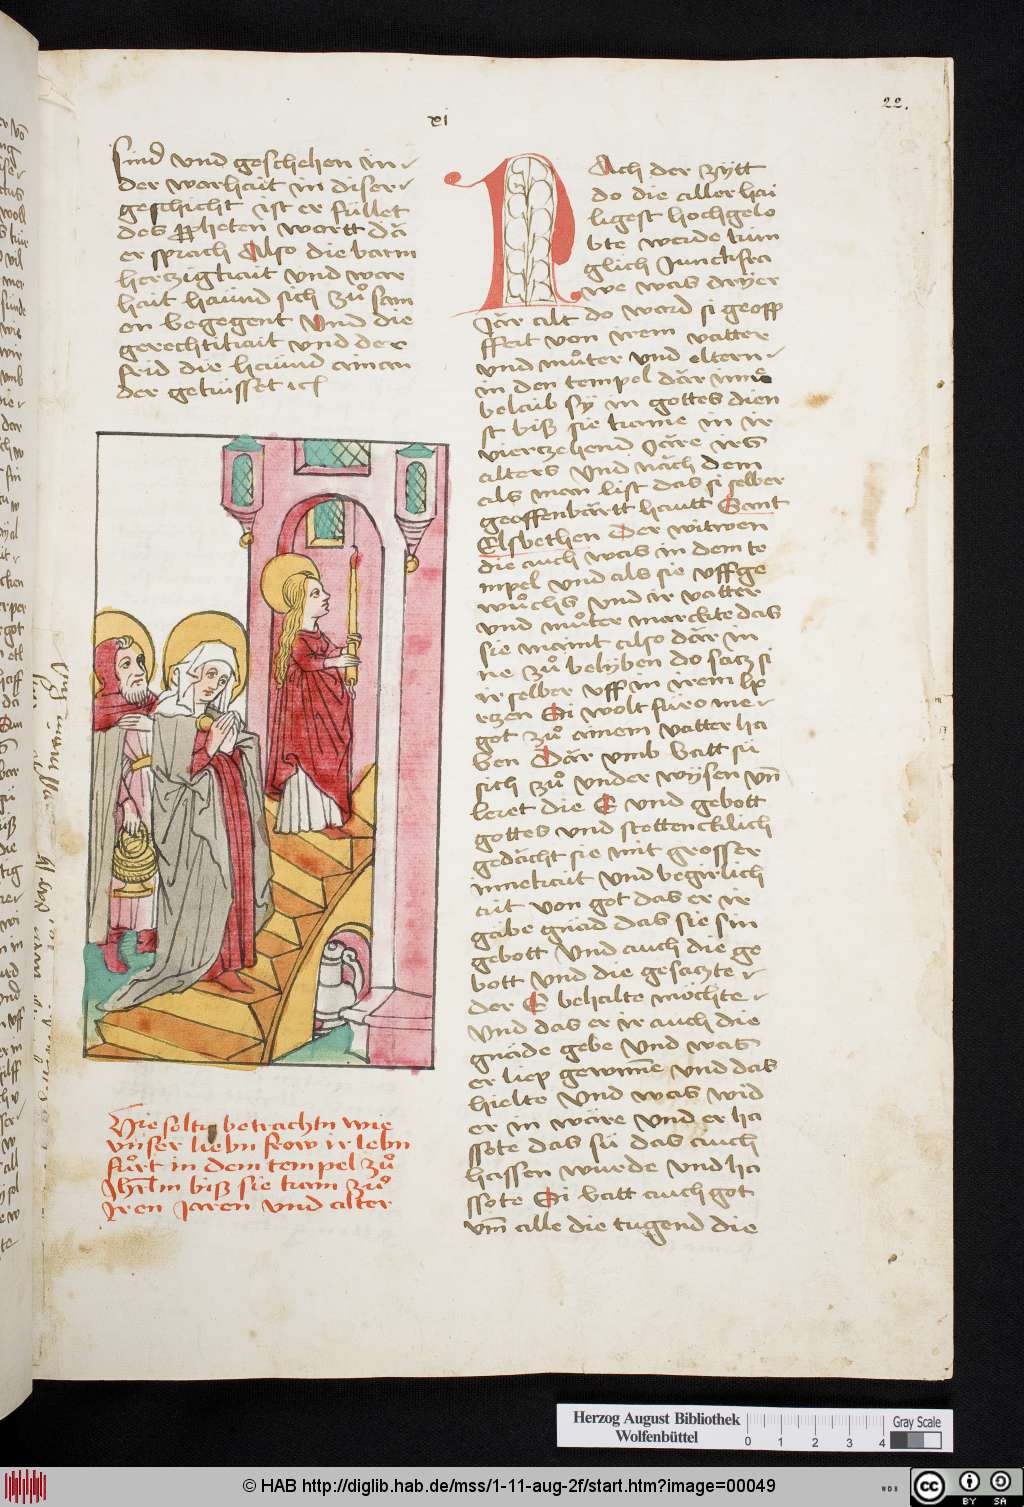 xi
22.
sind vnd geschehen in
der warhait in diser
geschicht ist er füllet
des ppheten wortt da
er sprach Also die barm
herzigkait vnd war
hait haund sich zuͦ sam
en begegent Vnd die
gerechtikait vnd der
frid die haund ainan
der geküsset
Hie soltu betrachtn wie
vnser liebn frow ir lebn
fuͦrt in dem tempel zuͦ
Jhrlm biß sie kam zuͦ
Jren Jaren vnd alter
NAch der zytt
do die aller hai
ligest hochgelo
bte werde kün
glich Junckfra
we was dryer
Jar alt do ward si geopf
ffert von irem vatter
vnd muͦter vnd eltern
in den tempel dar inne
belaib sy in gottes dien
st biß sie kame in ir
vierzehend Jare irs
alters vnd nach dem
als man list das si selber
geoffenbartt hautt Sant
Elsbethen Der witwen
die auch was in dem te
mpel vnd als sie vffge
wuͦchs vnd ir vatter
vnd muͦter marckte das
sie maint also dar in
ne zuͦ belyben do sacz si
ir selber vff in irem hp
rczen Si wolt furo me
got zuͦ ainem vatter ha
ben Dar vmb batt si
sich zuͦ vnder wysen vn̄
leret die E vnd gebott
gottes vnd stettencklich
gedacht sie mit grosser
innekait vnd begirlich
ait von got das er ir
gabe gnad das sie sin
gebott vnd auch die ge
bott vnd die gesaczte
der E behalte möchte
vnd das er ir auch die
gnade gebe vnd was
er liep gewinne vnd das
hielte vnd was wid
er in wäre vnd er ha
ssote das si das auch
hassen wurde vnd ha
ssote Si batt auch got
vm̄ alle die tugend die
Herzog August Bibliothek
Wolfenbüttel
0 1 2 3 4
Gray Scale
© HAB http://diglib.hab.de/mss/1-11-aug-2f/start.htm?image=00049
WDB
cc BY SA